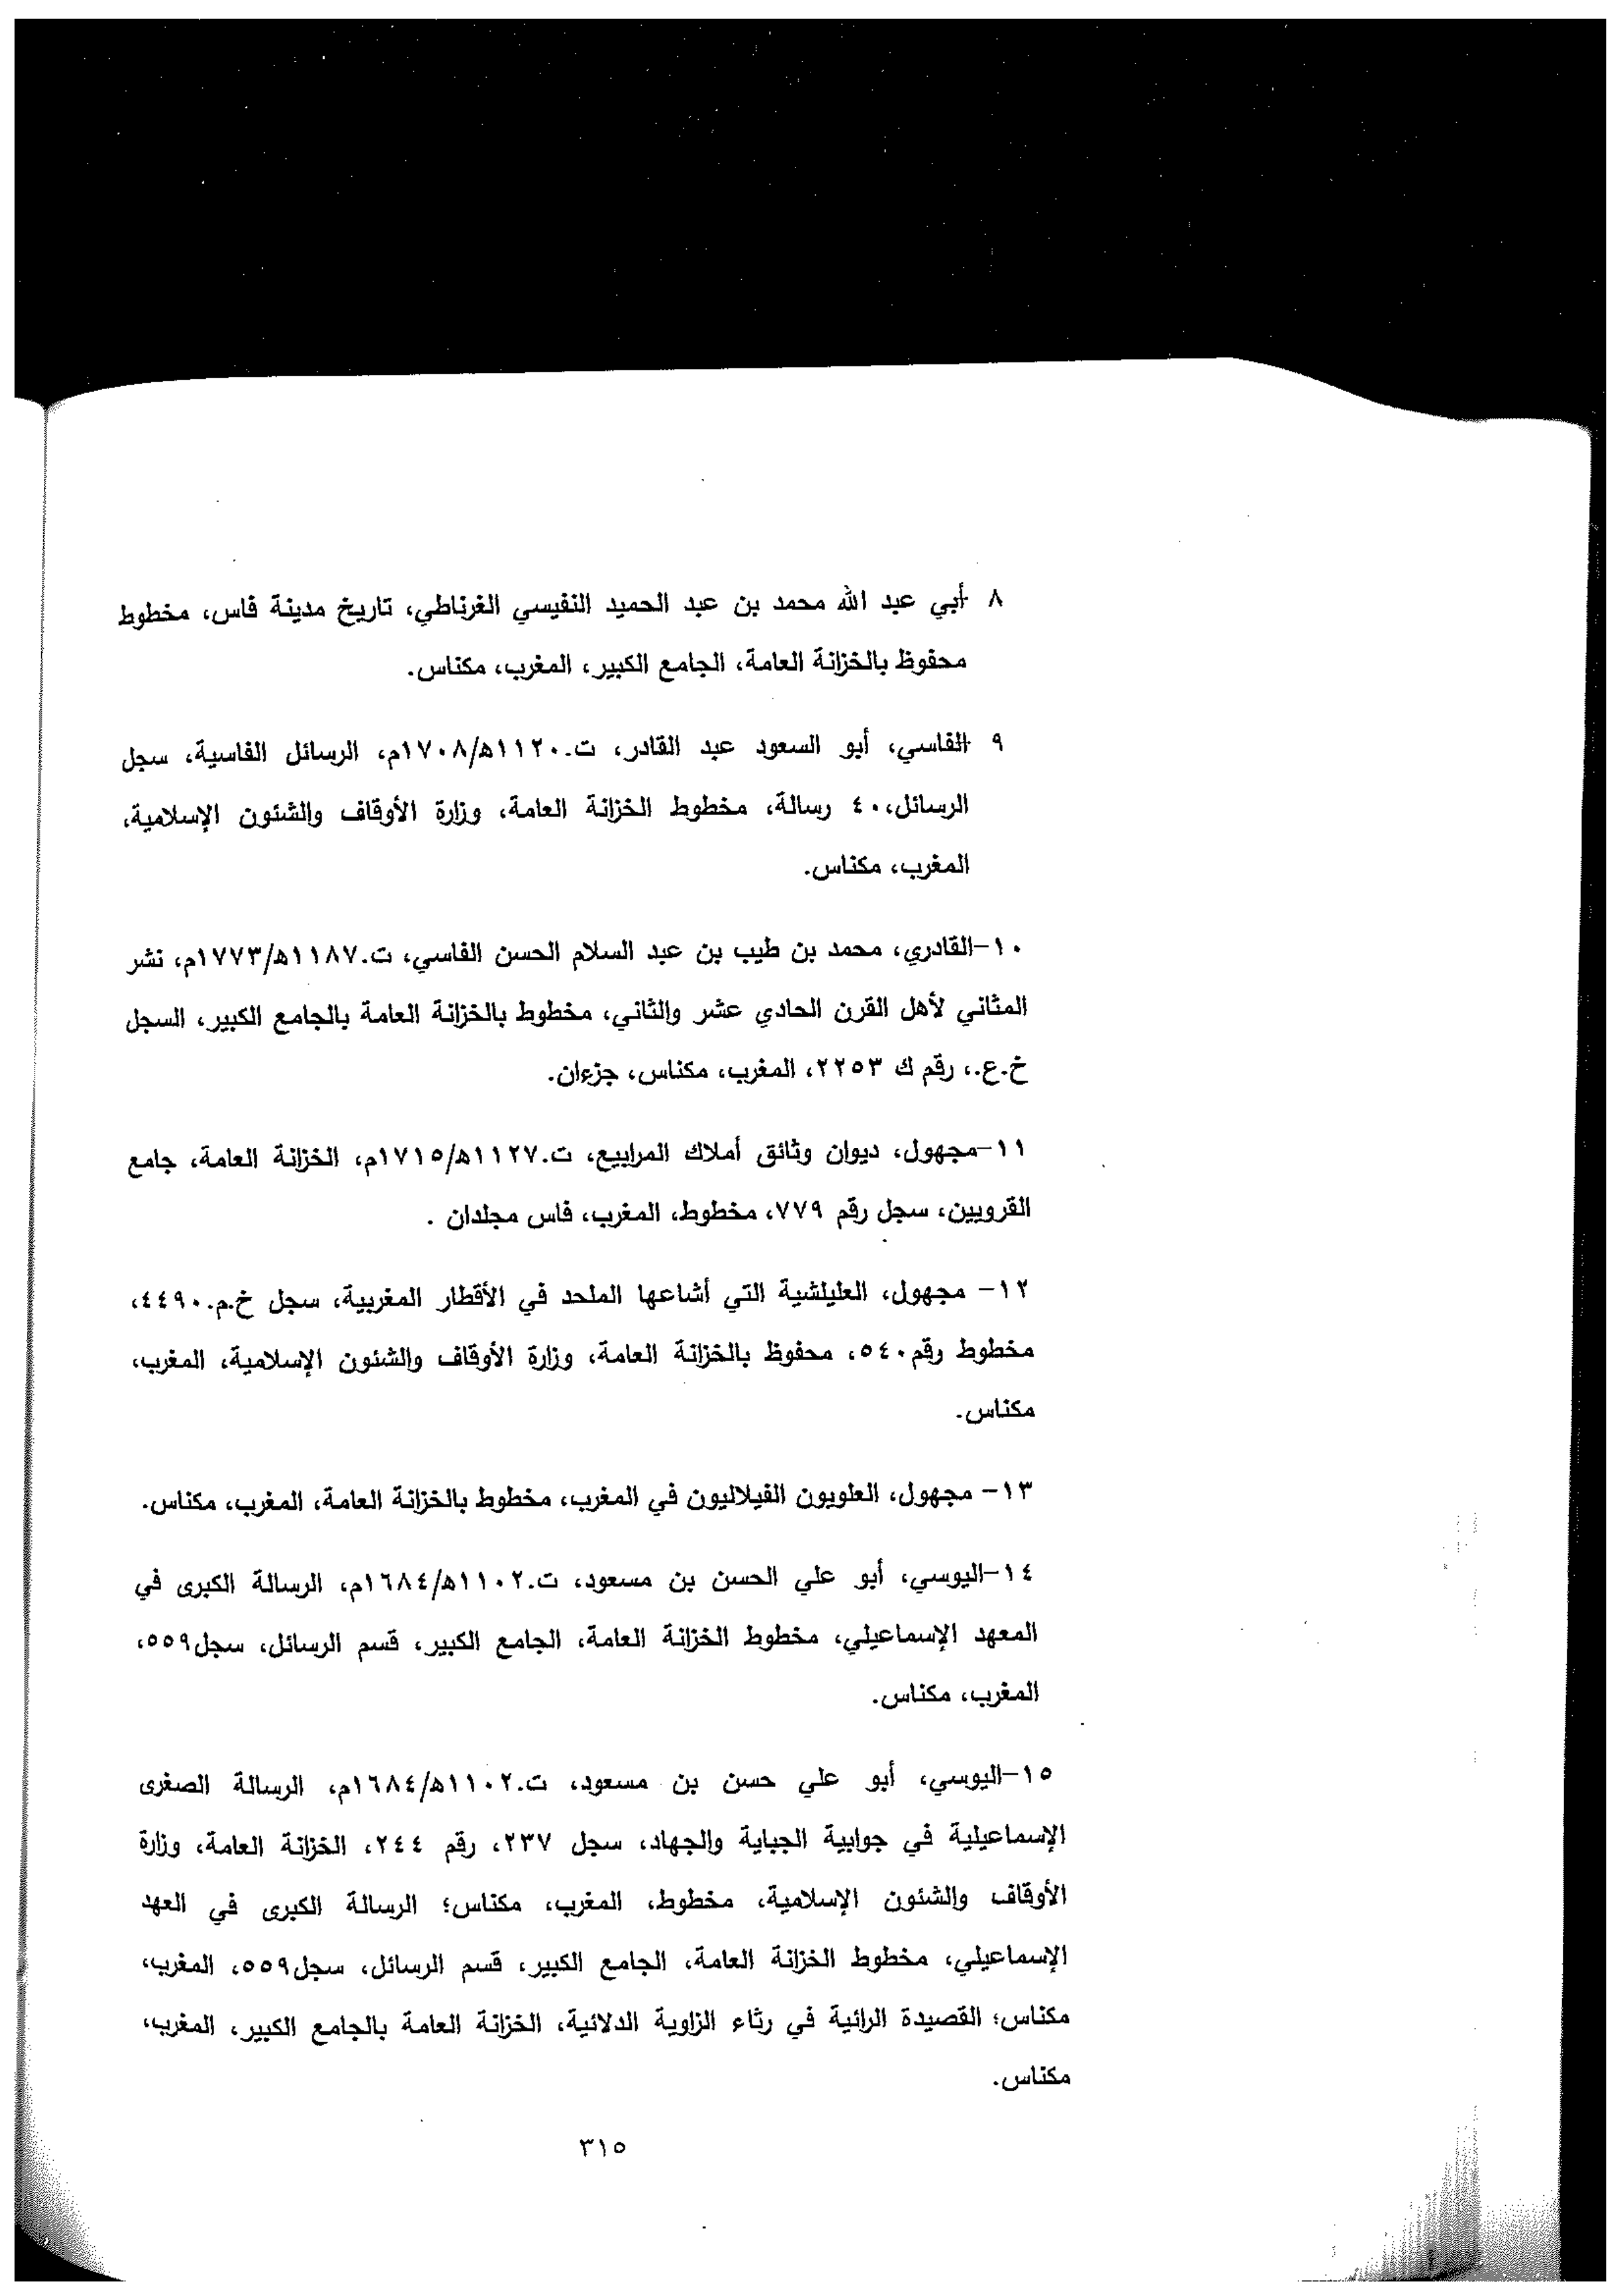 ٨ -أبي عبد الله محمد بن عبد الحميد النفيسي الغرناطي، تاريخ مدينة فاس، مخطوط
محفوظ بالخزانة العامة، الجامع الكبير، المغرب، مكناس.
٩ -الفاسي، أبو السعود عبد القادر، ت.١١٢٠ه/١٧٠٨م، الرسائل الفاسية، سجل
الرسائل،٤٠ رسالة، مخطوط الخزانة العامة، وزارة الأوقاف والشئون الإسلامية،
المغرب، مكناس.
١٠-القادري، محمد بن طيب بن عبد السلام الحسن الفاسي، ت.١١٨٧ه/١٧٧٣م، نشر
المثاني لأهل القرن الحادي عشر والثاني، مخطوط بالخزانة العامة بالجامع الكبير، السجل
خ.ع.، رقم ك ٢٢٥٣، المغرب، مكناس، جزءان.
١١-مجهول، ديوان وثائق أملاك المرابيع، ت.١١٢٧ه/١٧١٥م، الخزانة العامة، جامع
القرويين، سجل رقم ٧٧٩، مخطوط، المغرب، فاس مجلدان .
١٢- مجهول، العليلشية التي أشاعها الملحد في الأقطار المغربية، سجل خ.م.٤٤٩٠،
مخطوط رقم٥٤٠، محفوظ بالخزانة العامة، وزارة الأوقاف والشئون الإسلامية، المغرب،
مكناس.
١٣- مجهول، العلويون الفيلاليون في المغرب، مخطوط بالخزانة العامة، المغرب، مكناس.
١٤-اليوسي، أبو علي الحسن بن مسعود، ت.١١٠٢ه/١٦٨٤م، الرسالة الكبرى في
المعهد الإسماعيلي، مخطوط الخزانة العامة، الجامع الكبير، قسم الرسائل، سجل٥٥٩،
المغرب، مكناس.
١٥-اليوسي، أبو علي حسن بن مسعود، ت.١١٠٢ه/١٦٨٤م، الرسالة الصغرى
الإسماعيلية في جوابية الجباية والجهاد، سجل ٢٣٧، رقم ٢٤٤، الخزانة العامة، وزارة
الأوقاف والشئون الإسلامية، مخطوط، المغرب، مكناس؛ الرسالة الكبرى في العهد
الإسماعيلي، مخطوط الخزانة العامة، الجامع الكبير، قسم الرسائل، سجل٥٥٩، المغرب،
مكناس؛ القصيدة الرائية في رثاء الزاوية الدلائية، الخزانة العامة بالجامع الكبير، المغرب،
مكناس.
٣١٥